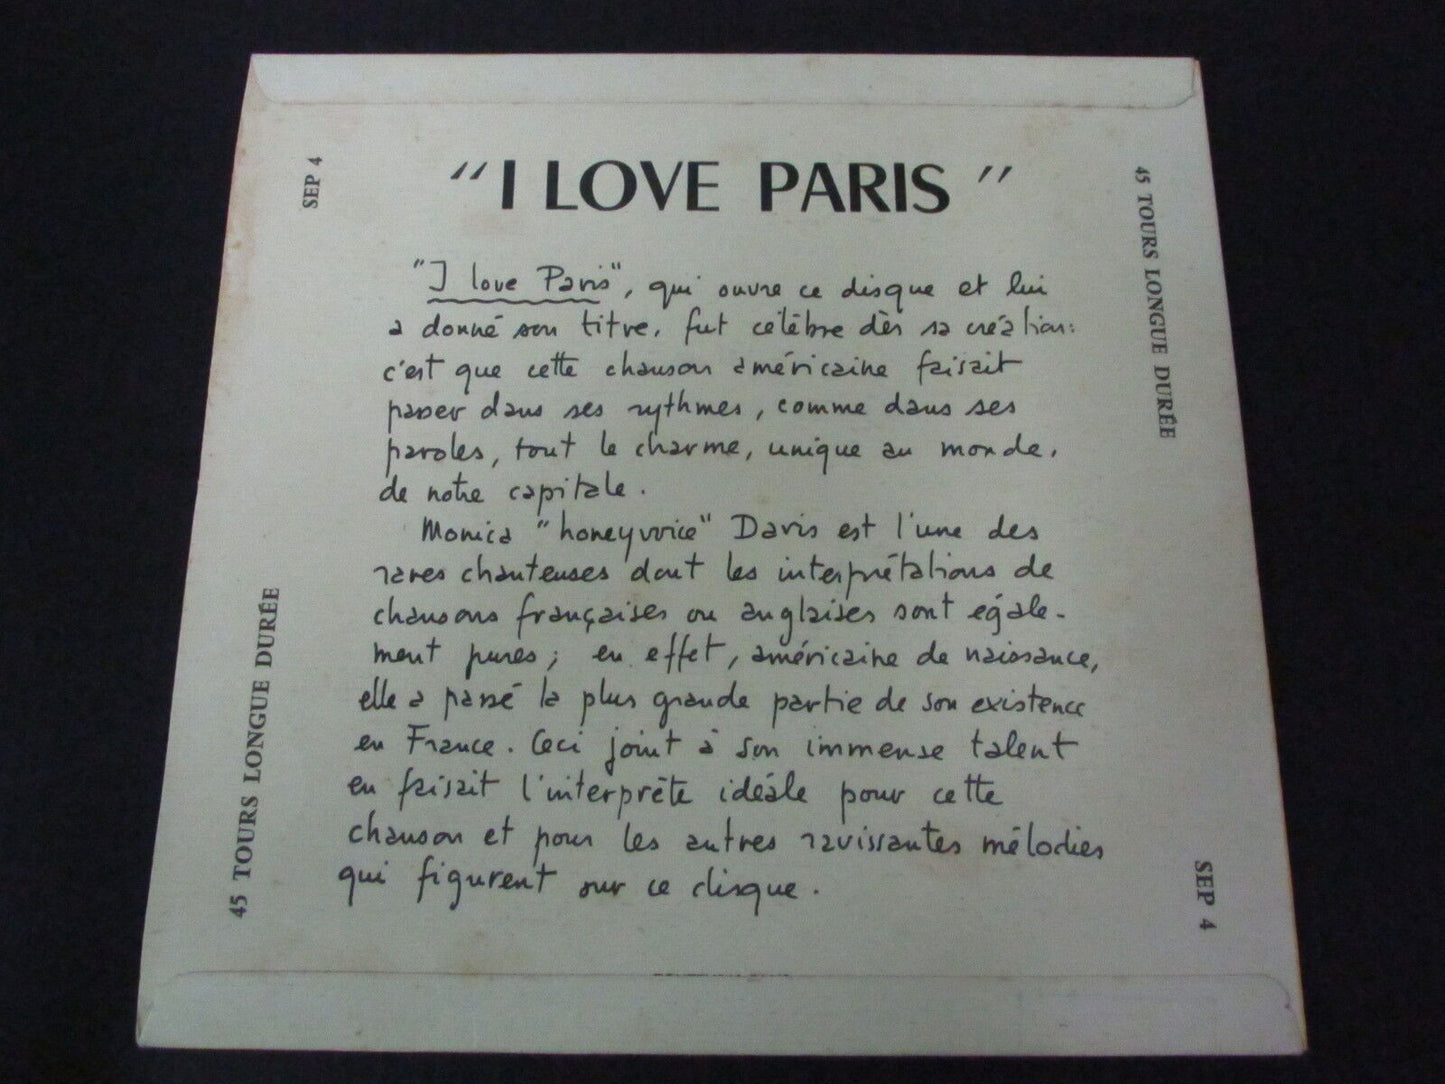 SEP 4
45 TOURS LONGUE DURÉE
" I LOVE PARIS "
"I love Paris", qui ouvre ce disque et lui
a donné son titre, fut célèbre dès sa création:
c'est que cette chanson américaine faisait
passer dans ses rythmes, comme dans ses
paroles, tout le charme, unique au monde,
de notre capitale.
Monica "honeyvoice" Davis est l'une des
rares chanteuses dont les interprétations de
chansons françaises ou anglaises sont égale-
ment pures; en effet, américaine de naissance,
elle a passé la plus grande partie de son existence
en France. Ceci joint à son immense talent
en faisait l'interprète idéale pour cette
chanson et pour les autres ravissantes mélodies
qui figurent sur ce disque.
45 TOURS LONGUE DURÉE
SEP 4